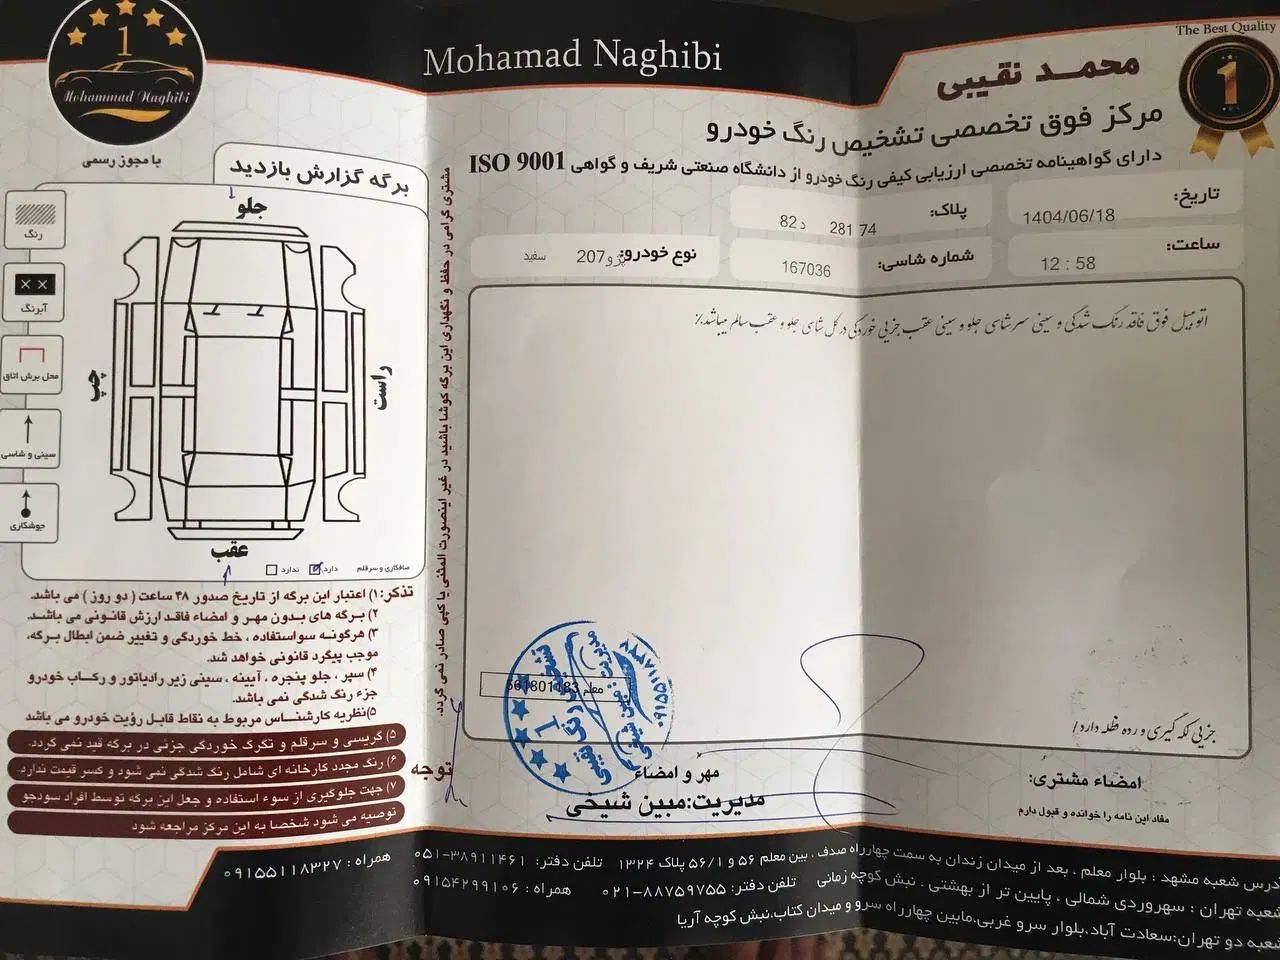 The Best Quality
1
Mohamad Naghibi
محمد نقیبی
مرکز فوق تخصصی تشخیص رنگ خودرو
دارای گواهینامه تخصصی ارزیابی کیفی رنگ خودرو از دانشگاه صنعتی شریف و گواهی ISO 9001
تاریخ: 1404/06/18
پلاک: 74 281 د 82
ساعت: 12 : 58
شماره شاسی: 167036
نوع خودرو: پژو207 سفید
اتومبیل فوق فاقد رنگ شدگی و سینی سرشاسی جلو و سینی عقب جزیی خوردگی در کل شاسی جلو و عقب سالم میباشد./
جزیی لکه گیری و رده ظله دارد/
امضاء مشتری:
مفاد این نامه را خوانده و قبول دارم
مهر و امضاء
مدیریت:مبین شیخی
معلم 661801183
1
Mohammad Naghibi
با مجوز رسمی
برگه گزارش بازدید
جلو
راست
چپ
عقب
رنگ
آبرنگ
محل برش اتاق
سینی و شاسی
جوشکاری
صافکاری و سرقلم دارد ندارد
مشتری گرامی در حفظ و نگهداری این برگه کوشا باشید در غیر اینصورت المثنی یا کپی صادر نمی گردد.
تذکر: ۱) اعتبار این برگه از تاریخ صدور ۴۸ ساعت ( دو روز ) می باشد.
۲) برگه های بدون مهر و امضاء فاقد ارزش قانونی می باشد.
۳) هرگونه سواستفاده ، خط خوردگی و تغییر ضمن ابطال برگه،
موجب پیگرد قانونی خواهد شد.
۴) سپر ، جلو پنجره ، آیینه ، سینی زیر رادیاتور و رکاب خودرو
جزء رنگ شدگی نمی باشد.
۵)نظریه کارشناس مربوط به نقاط قابل رؤیت خودرو می باشد
توجه
۵) گریسی و سرقلم و تگرگ خوردگی جزئی در برگه قید نمی گردد.
۶) رنگ مجدد کارخانه ای شامل رنگ شدگی نمی شود و کسر قیمت ندارد.
۷) جهت جلوگیری از سوء استفاده و جعل این برگه توسط افراد سودجو
توصیه می شود شخصا به این مرکز مراجعه شود
آدرس شعبه مشهد : بلوار معلم ، بعد از میدان زندان به سمت چهارراه صدف ، بین معلم ۵۶ و ۵۶/۱ پلاک ۱۳۲۴ تلفن دفتر: ۳۸۹۱۱۴۶۱-۰۵۱ همراه : ۰۹۱۵۵۱۱۸۳۲۷
شعبه تهران : سهروردی شمالی ، پایین تر از بهشتی ، نبش کوچه زمانی تلفن دفتر: ۸۸۷۵۹۷۵۵-۰۲۱ همراه : ۰۹۱۵۴۲۹۹۱۰۶
شعبه دو تهران:سعادت آباد،بلوار سرو غربی،مابین چهارراه سرو و میدان کتاب،نبش کوچه آریا